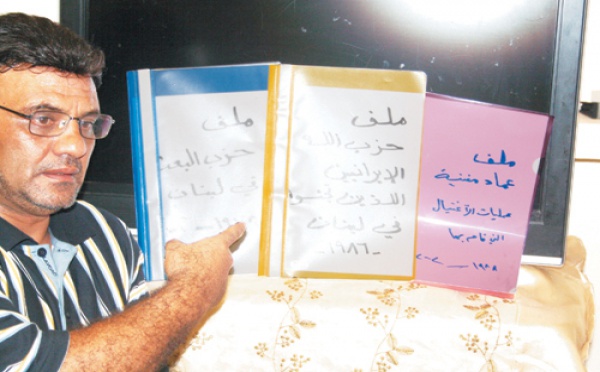 ملف
حزب البعث
في لبنان
ملف
حزب الله
الإيرانيين
اللذين
في لبنان
-١٩٨٦-
ملف
عماد مغنية
عمليات الاغتيال
التي قام بها